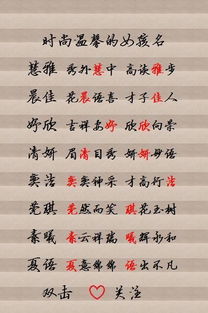 时尚温馨的女孩名
慧雅 秀外慧中 高谈雅步
晨佳 花晨语喜 才子佳人
妤欣 吉祥如妤 欣欣向荣
清妍 眉清目秀 妍妍妙语
奕洁 奕奕神采 才高行洁
莞琪 莞然而笑 琪花玉树
素曦 素云祥瑞 曦辉永和
夏语 夏意绵绵 语出不凡
双击 关注